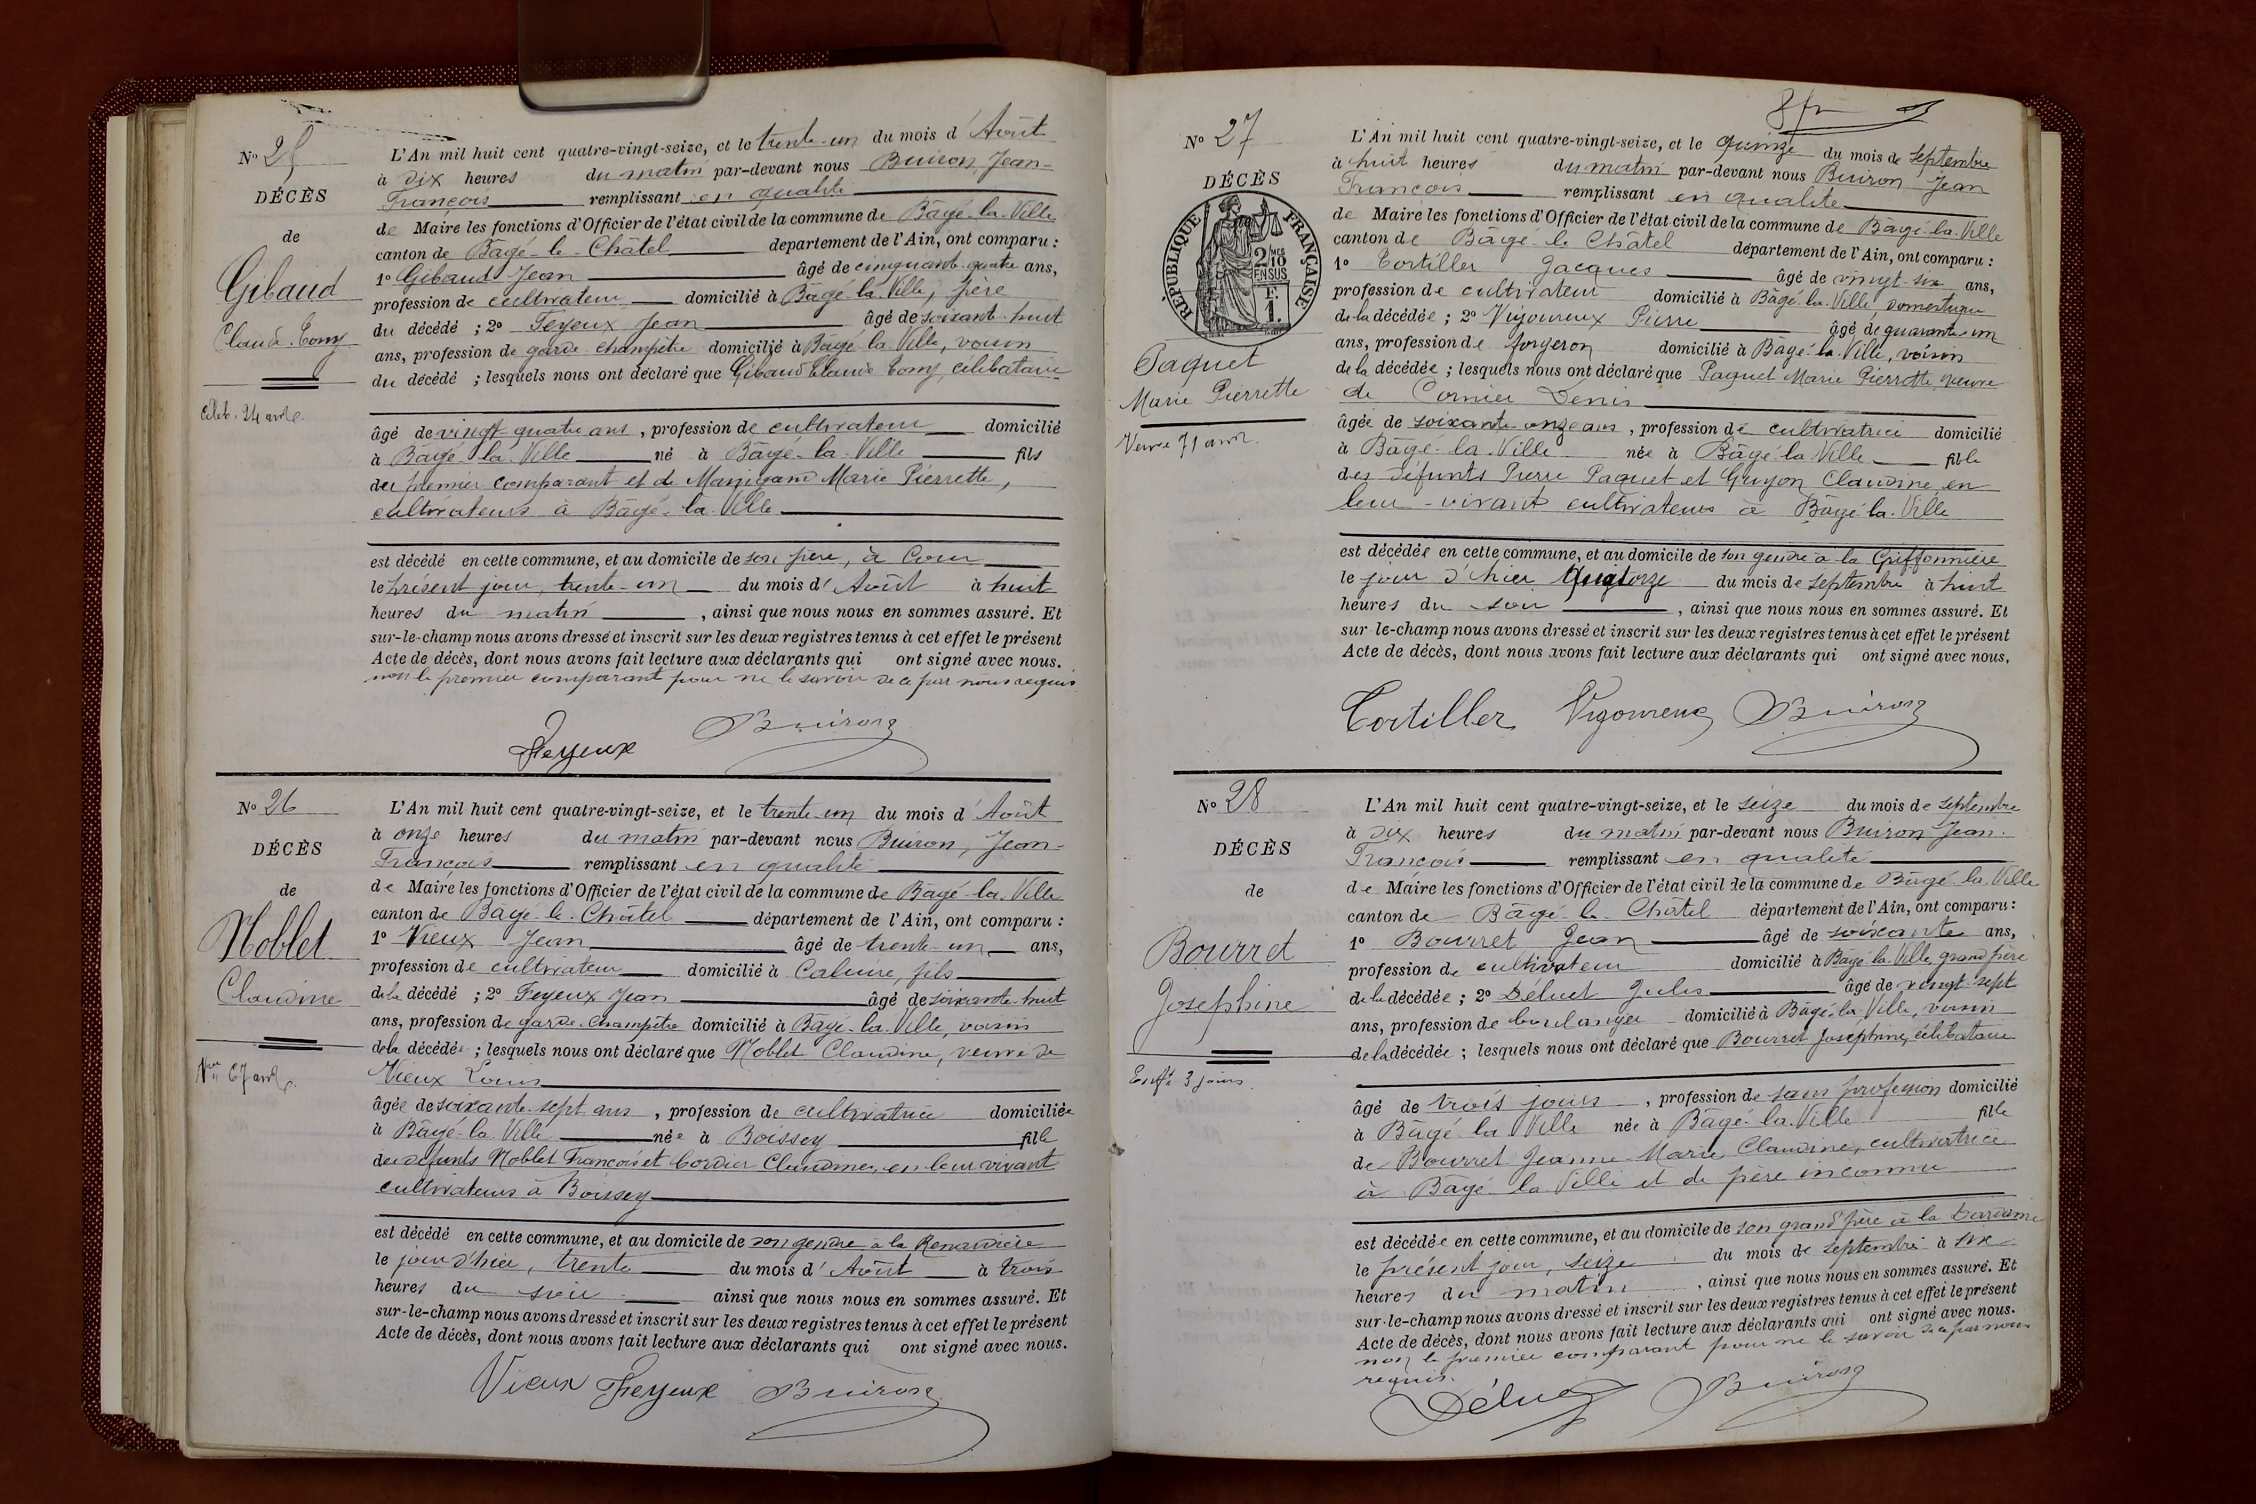 N° 25
DÉCÈS
de
Gibaud
Claude Tony
Célib. 24 ans
L'An mil huit cent quatre-vingt-seize, et le trente-un du mois d'Août
à dix heures du matin par-devant nous Buiron, Jean-
François remplissant en qualité
de Maire les fonctions d'Officier de l'état civil de la commune de Bâgé-la-Ville
canton de Bâgé-le-Châtel département de l'Ain, ont comparu :
1° Gibaud Jean âgé de cinquante-quatre ans,
profession de cultivateur domicilié à Bâgé-la-Ville, père
du décédé ; 2° Feyeux Jean âgé de soixante-huit
ans, profession de garde-champêtre domicilié à Bâgé-la-Ville, voisin
du décédé ; lesquels nous ont déclaré que Gibaud Claude Tony, célibataire
âgé de vingt-quatre ans, profession de cultivateur domicilié
à Bâgé-la-Ville né à Bâgé-la-Ville fils
du premier comparant et de Marie Pierrette,
cultivateurs à Bâgé-la-Ville
est décédé en cette commune, et au domicile de son père, à Cour
le présent jour, trente-un du mois d'Août à huit
heures du matin, ainsi que nous nous en sommes assuré. Et
sur-le-champ nous avons dressé et inscrit sur les deux registres tenus à cet effet le présent
Acte de décès, dont nous avons fait lecture aux déclarants qui ont signé avec nous.
non le premier comparant pour ne le savoir de ce par nous requis
Feyeux Buiron
N° 26
DÉCÈS
de
Noblet
Claudine
Vve 67 ans
L'An mil huit cent quatre-vingt-seize, et le trente-un du mois d'Août
à onze heures du matin par-devant nous Buiron, Jean-
François remplissant en qualité
de Maire les fonctions d'Officier de l'état civil de la commune de Bâgé-la-Ville
canton de Bâgé-le-Châtel département de l'Ain, ont comparu :
1° Vieux Jean âgé de trente-un ans,
profession de cultivateur domicilié à Caluire, fils
de la décédé ; 2° Feyeux Jean âgé de soixante-huit
ans, profession de garde-champêtre domicilié à Bâgé-la-Ville, voisin
de la décédée ; lesquels nous ont déclaré que Noblet Claudine, veuve de
Vieux Louis
âgée de soixante-sept ans, profession de cultivatrice domiciliée
à Bâgé-la-Ville née à Boissey fille
des défunts Noblet François et Cordier Claudine, en leur vivant
cultivateurs à Boissey
est décédé en cette commune, et au domicile de son gendre à la Renardière
le jour d'hier, trente du mois d'Août à trois
heures du soir ainsi que nous nous en sommes assuré. Et
sur-le-champ nous avons dressé et inscrit sur les deux registres tenus à cet effet le présent
Acte de décès, dont nous avons fait lecture aux déclarants qui ont signé avec nous.
Vieux Feyeux Buiron
N° 27
DÉCÈS
RÉPUBLIQUE FRANÇAISE
2/10 MES EN SUS
1 F.
Paquet
Marie Pierrette
Veuve 71 ans
L'An mil huit cent quatre-vingt-seize, et le quinze du mois de septembre
à huit heures du matin par-devant nous Buiron Jean
François remplissant en qualité
de Maire les fonctions d'Officier de l'état civil de la commune de Bâgé-la-Ville
canton de Bâgé-le-Châtel département de l'Ain, ont comparu :
1° Tortiller Jacques âgé de vingt-six ans,
profession de cultivateur domicilié à Bâgé-la-Ville, domestique
de la décédée ; 2° Vigoureux Pierre âgé de quarante-un
ans, profession de forgeron domicilié à Bâgé-la-Ville, voisin
de la décédée ; lesquels nous ont déclaré que Paquet Marie Pierrette, veuve
de Cornier Denis
âgée de soixante-onze ans, profession de cultivatrice domicilié
à Bâgé-la-Ville née à Bâgé-la-Ville fille
des défunts Pierre Paquet et Guyon Claudine, en
leur vivant cultivateurs à Bâgé-la-Ville
est décédée en cette commune, et au domicile de son gendre à la Griffonnière
le jour d'hier quatorze du mois de septembre à huit
heures du soir, ainsi que nous nous en sommes assuré. Et
sur-le-champ nous avons dressé et inscrit sur les deux registres tenus à cet effet le présent
Acte de décès, dont nous avons fait lecture aux déclarants qui ont signé avec nous.
Tortiller Vigoureux Buiron
N° 28
DÉCÈS
de
Bourret
Josephine
Enft 3 jours
L'An mil huit cent quatre-vingt-seize, et le seize du mois de septembre
à dix heures du matin par-devant nous Buiron Jean-
François remplissant en qualité
de Maire les fonctions d'Officier de l'état civil de la commune de Bâgé-la-Ville
canton de Bâgé-le-Châtel département de l'Ain, ont comparu :
1° Bourret Jean âgé de soixante ans,
profession de cultivateur domicilié à Bâgé-la-Ville, grand père
de la décédée ; 2° Déluet Jules âgé de vingt-sept
ans, profession de boulanger domicilié à Bâgé-la-Ville, voisin
de la décédée ; lesquels nous ont déclaré que Bourret Josephine, célibataire
âgé de trois jours, profession de sans profession domicilié
à Bâgé la Ville née à Bâgé-la-Ville fille
de Bourret Jeanne-Marie Claudine, cultivatrice
à Bâgé-la-Ville et de père inconnu
est décédée en cette commune, et au domicile de son grand père à la
le présent jour, seize du mois de septembre à six
heures du matin, ainsi que nous nous en sommes assuré. Et
sur-le-champ nous avons dressé et inscrit sur les deux registres tenus à cet effet le présent
Acte de décès, dont nous avons fait lecture aux déclarants qui ont signé avec nous.
non le premier comparant pour ne le savoir de ce par nous
requis.
Déluet Buiron